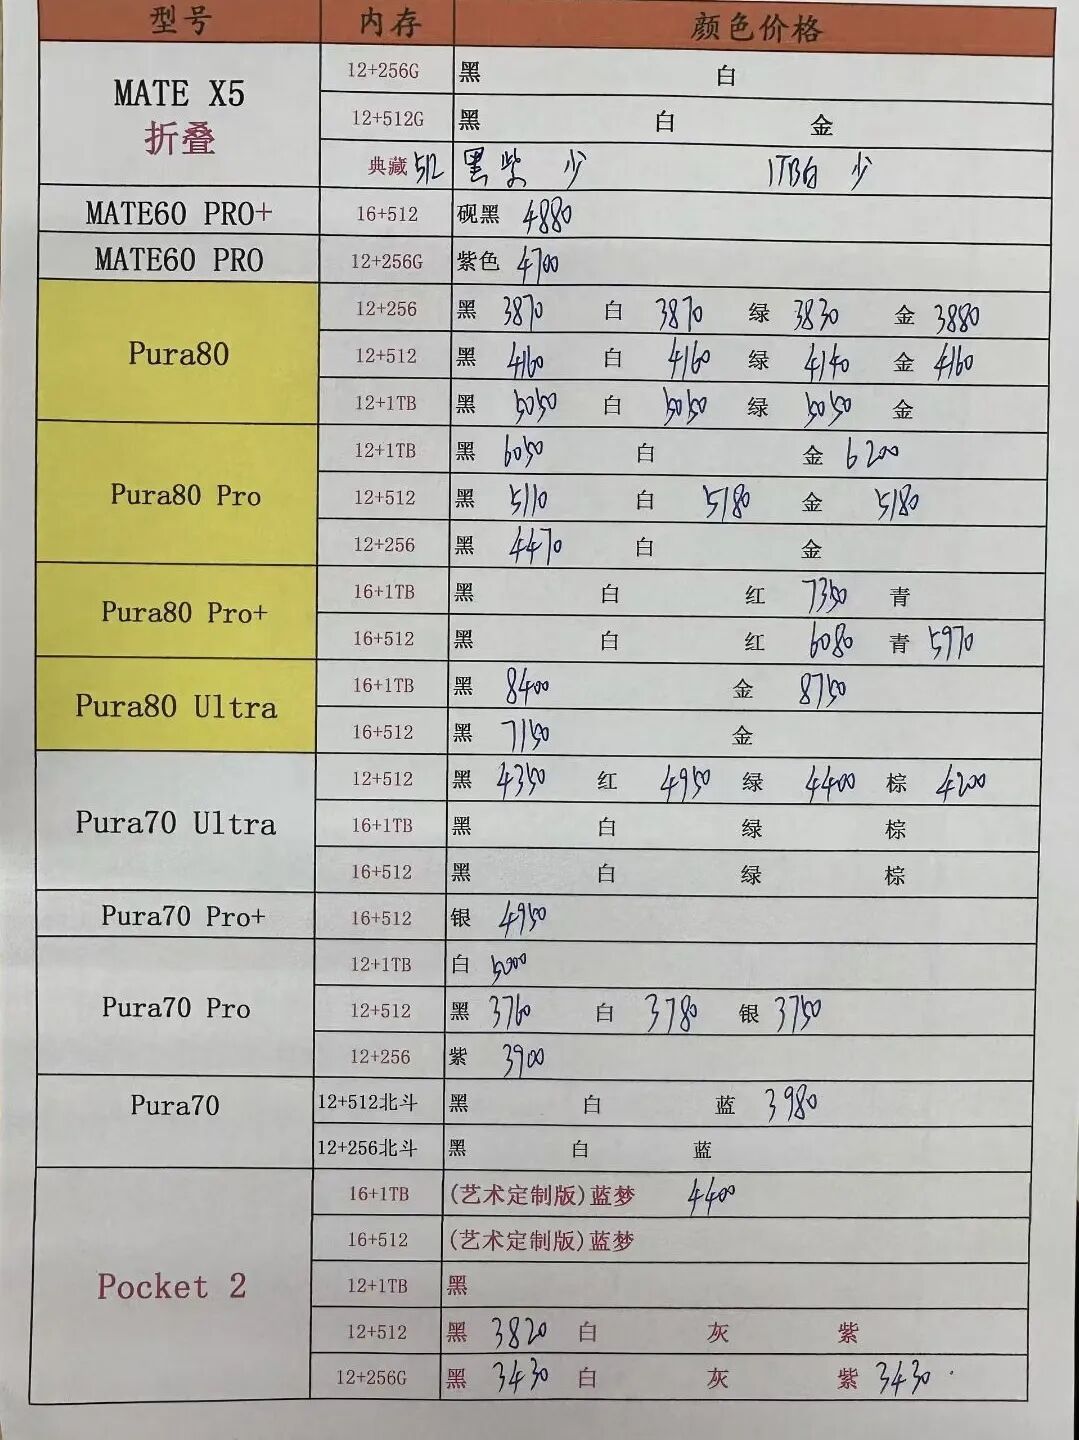 型号 内存 颜色价格
MATE X5 折叠 12+256G 黑 白
12+512G 黑 白 金
典藏 512 黑紫 少 1TB白 少
MATE60 PRO+ 16+512 砚黑 4880
MATE60 PRO 12+256G 紫色 4700
Pura80 12+256 黑 3870 白 3870 绿 3830 金 3880
12+512 黑 4160 白 4160 绿 4140 金 4160
12+1TB 黑 5050 白 5050 绿 5050 金
Pura80 Pro 12+1TB 黑 6050 白 金 6200
12+512 黑 5110 白 5180 金 5180
12+256 黑 4470 白 金
Pura80 Pro+ 16+1TB 黑 白 红 7350 青
16+512 黑 白 红 6080 青 5970
Pura80 Ultra 16+1TB 黑 8400 金 8750
16+512 黑 7150 金
Pura70 Ultra 12+512 黑 4350 红 4950 绿 4400 棕 4200
16+1TB 黑 白 绿 棕
16+512 黑 白 绿 棕
Pura70 Pro+ 16+512 银 4950
Pura70 Pro 12+1TB 白 5000
12+512 黑 3760 白 3780 银 3750
12+256 紫 3900
Pura70 12+512北斗 黑 白 蓝 3980
12+256北斗 黑 白 蓝
Pocket 2 16+1TB (艺术定制版)蓝梦 4400
16+512 (艺术定制版)蓝梦
12+1TB 黑
12+512 黑 3820 白 灰 紫
12+256G 黑 3430 白 灰 紫 3430